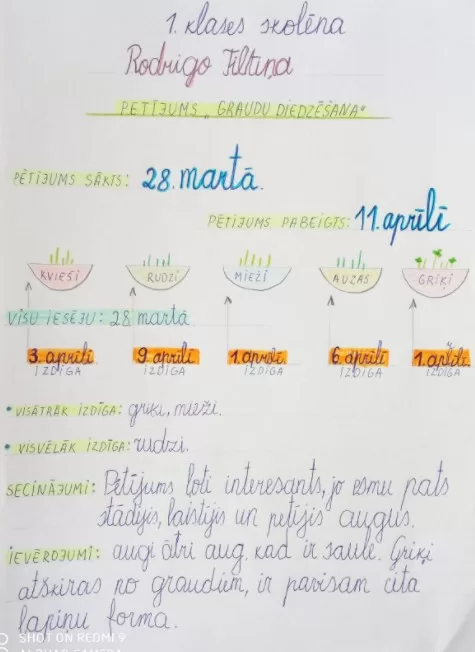 1. klases skolēna
Rodrigo Tiltiņa
PĒTĪJUMS „GRAUDU DIEDZĒŠANA"
PĒTĪJUMS SĀKTS: 28. martā.
PĒTĪJUMS PABEIGTS: 11. aprīlī
KVIEŠI RUDZI MIEŽI AUZAS GRIĶI
VISU IESĒJU: 28 martā
3. aprīlī 9 aprīlī 1. aprīlī 6. aprīlī 1. aprīlī
IZDĪGA IZDĪGA IZDĪGA IZDĪGA IZDĪGA
• VISĀTRĀK IZDĪGA: griķi, mieži.
• VISVĒLĀK IZDĪGA: rudzi.
SECINĀJUMI: Pētījums ļoti interesants, jo esmu pats
stādījis, laistījis un pētījis augus.
IEVĒROJUMI: augi ātri aug, kad ir saule. Griķi
atšķiras no graudiem, ir pavisam cita
lapiņu forma.
SHOT ON REDMI 9